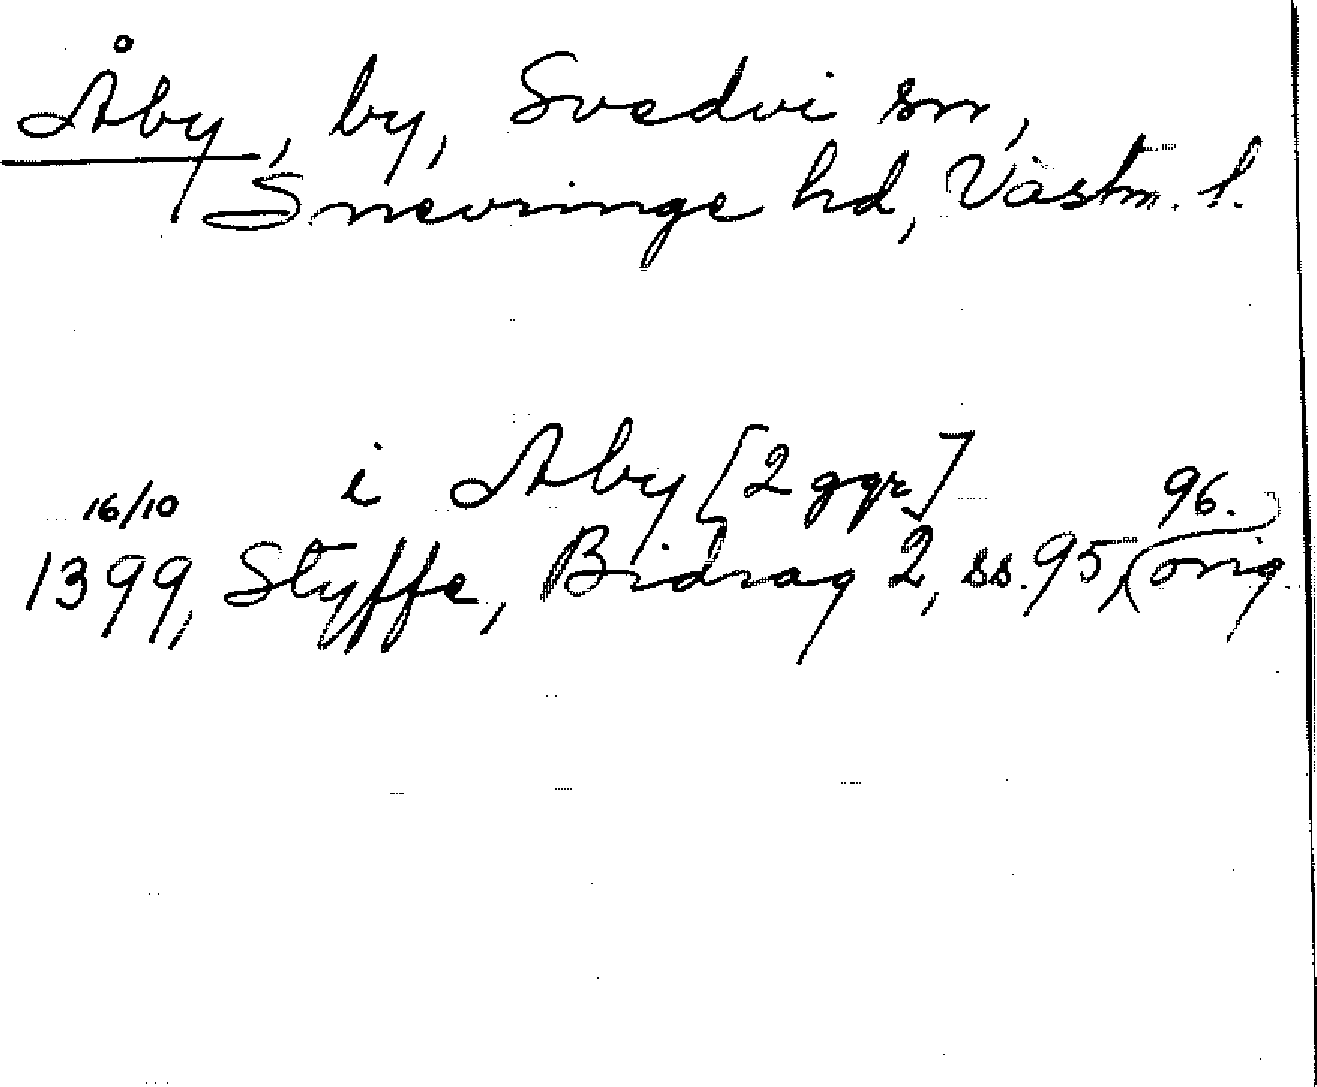 Åby, by, Svedvi sn,
Snevringe hd, Västm. l.
i Aby [2 ggr]
16/10 96.
1399, Styffe, Bidrag 2, ss. 95, orig.